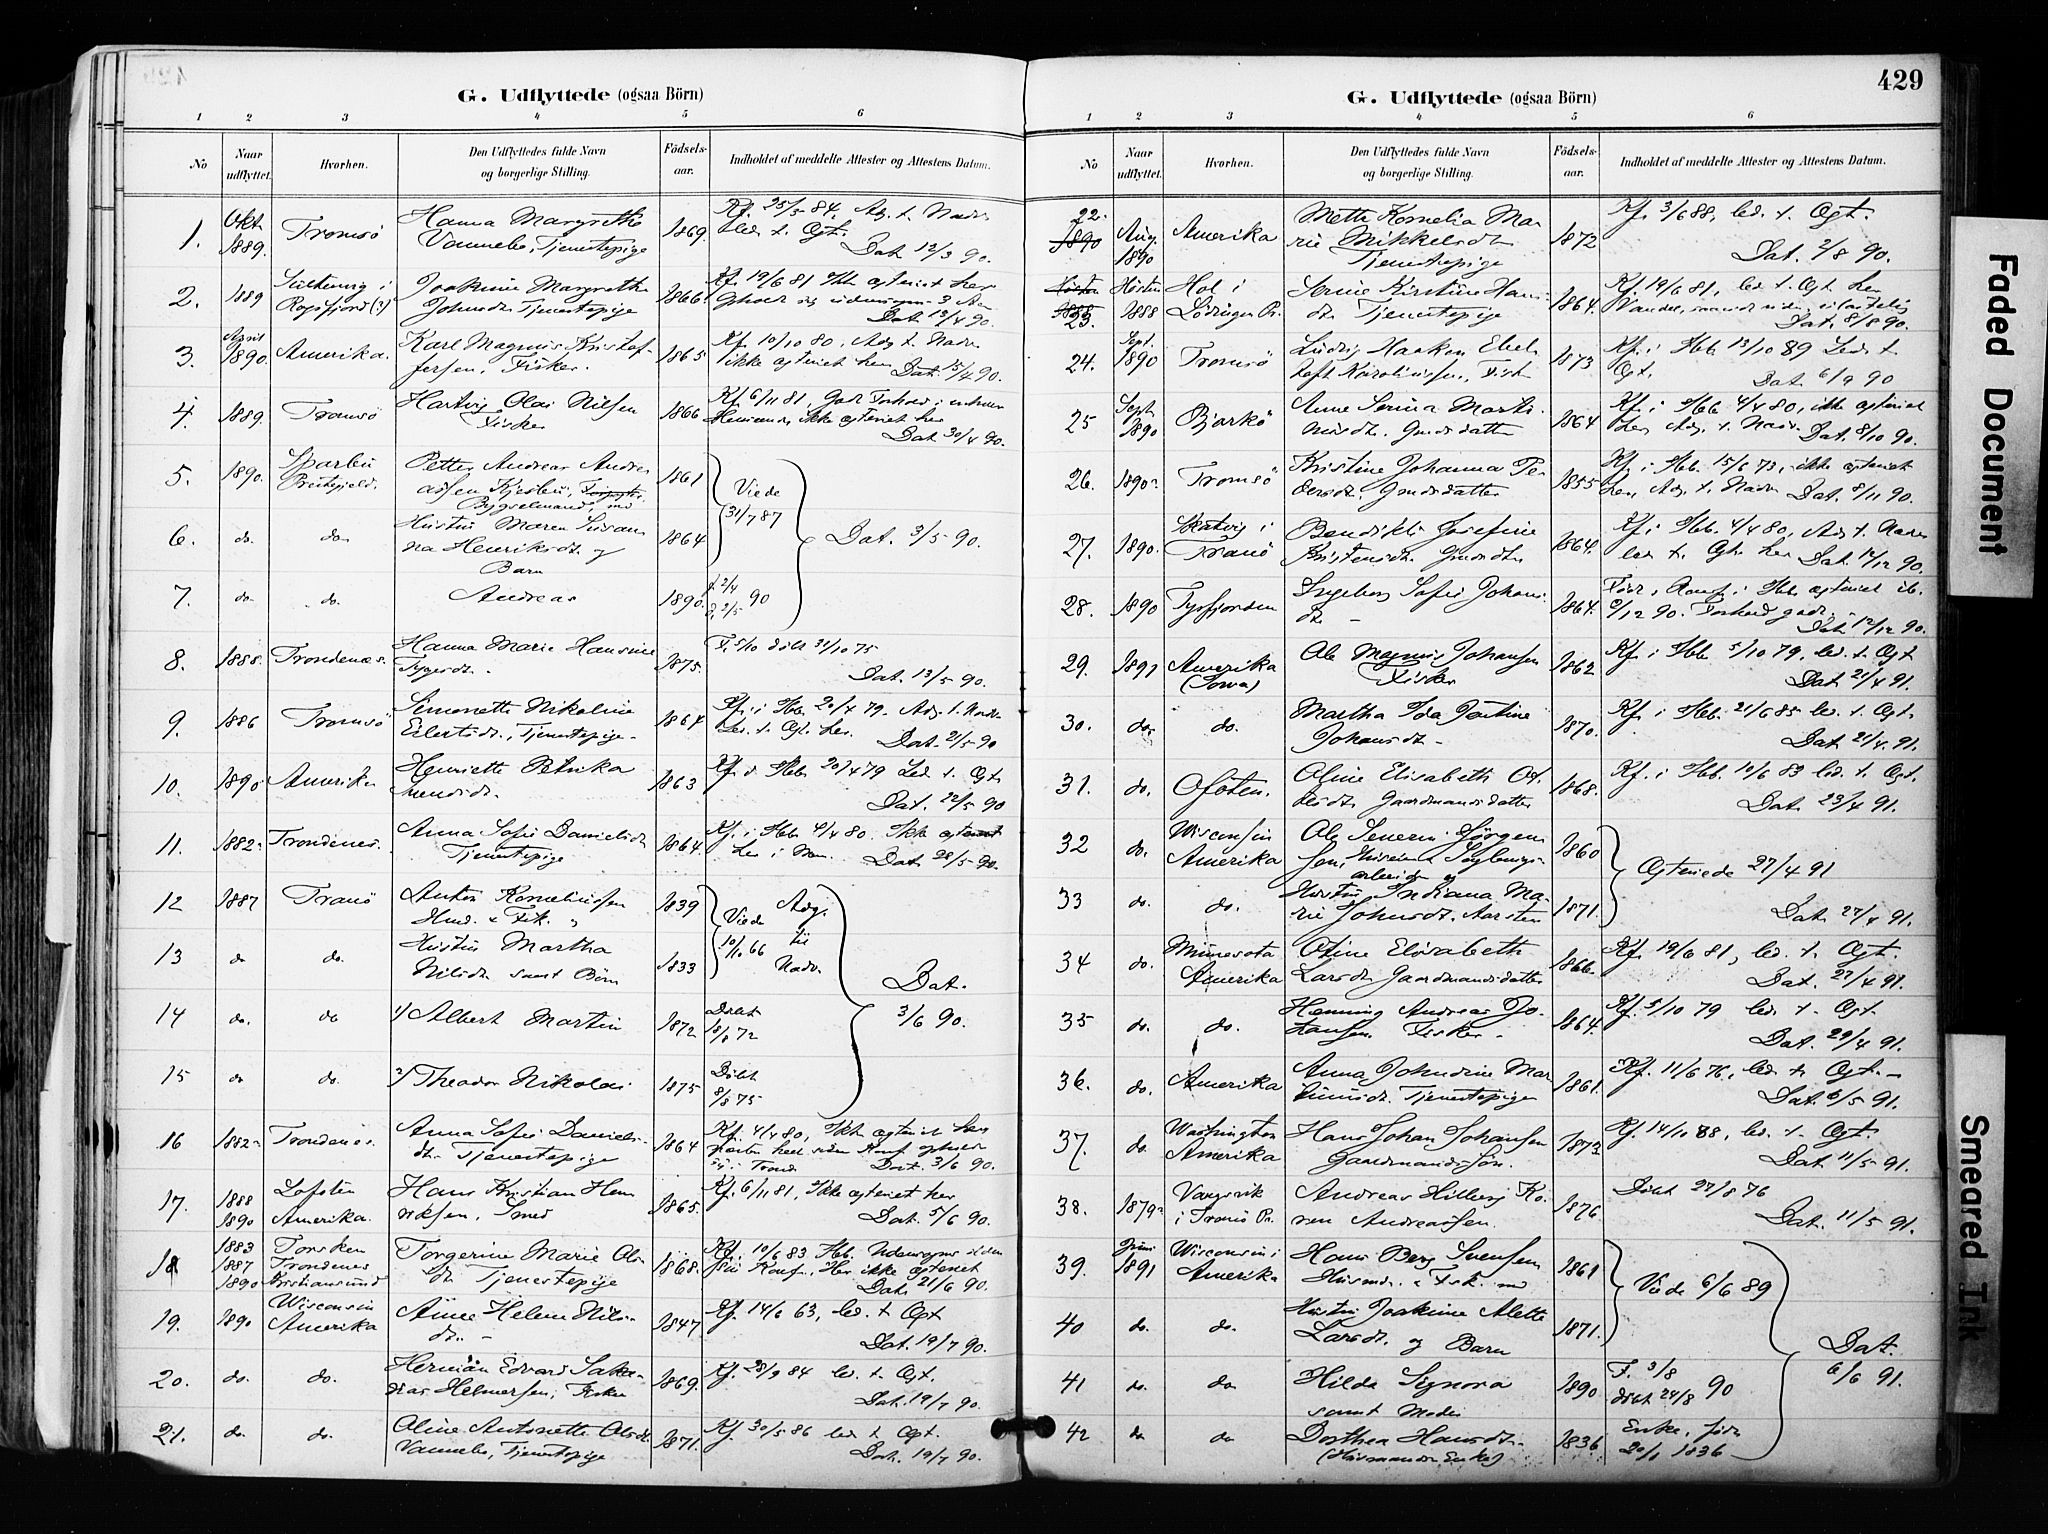 G. Udflyttede (ogsaa Börn)
1 2 3 4 5 6
No
Naar udflyttet.
Hvorhen.
Den Udflyttedes fulde Navn
og borgerlige Stilling.
Födsels-
aar.
Indholdet af meddelte Attester og Attestens Datum.
1. Okt. 1889. Tromsö Hanna Margrethe 1869. Kf. 25/5 84, Adg. t. Nadv.
Vannebo, Tjenestepige led. t. Ægt. Dat. 12/3 90.
2. 1889 Joakime Margrethe 1866 Kf. 19/6 81
Johnsdt. Tjenestepige Dat. 13/4 90.
3. April 1890. Amerika. Karl Magnus Kristof- 1865 Kf. 10/10 80, Adg. t. Nadv.
fersen, Fisker. ikke ægteviet her Dat. 15/4 90.
4. 1889. Tromsö Hartvig Olai Nilsen 1866 Kf. 6/11 81,
Fisker ikke ægteviet her Dat. 30/4 90.
5. 1890. Sparbu Petter Andreas Andre- 1861 Viede 31/7 87
Præstegjeld. assen Bygselmand, med
6. do. do. Hustru Maren Susan- 1864 Dat. 3/5 90.
na Henriksdt. og
Barn
7. do. do. Andreas 1890. f. 2/4 90
8. 1888. Trondenæs. Hanna Marie Hansine 1875. F. 5/10 döbt 31/10 75
Dat. 13/5 90.
9. 1886 Tromsö Simonette Nikoline 1864 Kf. i Hbb. 20/4 79. Adg. t. Nadv.
Eilertsdt., Tjenestepige Led. t. Ægt. her. Dat. 21/5 90
10. 1890 Amerika Henriette Petrika 1863 Kf. i Hbb. 20/4 79 Led. t. Ægt.
Svendsdt. Dat. 22/5 90
11. 1882 Trondenes. Anna Sofie Danielsdt. 1864. Kf. i Hbb. 4/4 80. Ikke ægteviet
Tjenestepige her Dat. 28/5 90.
12 1887 Tranö Anton Kornelinssen 1839 Viede 10/10 66 Adg. til Nadv.
Hmd. & Fisk.
13 do do. Hustru Martha 1833
Nilsdt. samt Börn Dat. 3/6 90.
14 do. do 1/ Albert Martin 1872 Döbt 18/8 72
15 do do. 2/ Theodor Nikolai 1875 Döbt 8/8 75
16 1882 Trondenæs. Anna Sofie Daniels- 1864 Kf. 4/4 80, Ikke ægteviet her
dt. Tjenestepige Dat. 3/6 90.
17. 1888 Lofoten Hans Kristian Hen- 1865. Kf. 6/11 81, Ikke ægteviet her
1890 Amerika. riksen, Smed Dat. 5/6 90.
18 1883 Torsken Torgerine Marie Ols- 1868. Kf. 10/6 83 Hbb.
1887 Trondenes dt. Tjenestepige Her ikke ægteviet
1890 Kristiansund Dat. 21/6 90.
19. 1890 Wisconsin Anne Helene Nils- 1847 Kf. 14/6 63, led. t. Ægt.
Amerika dt. Dat. 19/7 90.
20. do. do. Herman Edvard Saka- 1869. Kf. 28/9 84 led. t. Ægt.
rias Helmersen, Fisker Dat. 19/7 90.
21. do. do. Oline Antonette Olsdt. 1871. Kf. 30/5 86 led. t. Ægt.
Vannebo, Tjenestepige Dat. 19/7 90.
G. Udflyttede (ogsaa Börn)
429
1 2 3 4 5 6
No
Naar udflyttet.
Hvorhen.
Den Udflyttedes fulde Navn
og borgerlige Stilling.
Födsels-
aar.
Indholdet af meddelte Attester og Attestens Datum.
22. 1890 Aug. 1890 Amerika Mette Kornelia Ma- 1872 Kf. 3/6 88, led. t. Ægt.
rie Mikkelsdt. Dat. 2/8 90.
Tjenestepige
23. Hösten 1888 Hol i Serine Kirstine Hans- 1864. Kf. 19/6 81, led. t. Ægt. her
Lödingen Pr. dt. Tjenestepige Dat. 8/8 90.
24. Sept. 1890 Tromsö Ludvig Haakon Ebel- 1873 Kf. i Hbb. 13/10 89 Led. t.
toft Karolinssen, Fisk. Ægt. Dat. 6/9 90
25 Sept. 1890 Bjarkö Anne Serina Marti- 1864 Kf. i Hbb. 4/4 80, ikke ægteviet
nusdt. Gmds datter her Adg. t. Nadv. Dat. 8/10 90.
26. 1890 Tromsö Kristine Johanna Pe- 1855 Kf. i Hbb. 15/6 73, ikke ægteviet
dersdt. Gmdsdatter her, Adg. t. Nadv. Dat. 8/11 90.
27. 1890. Skatvig i Bendikte Josefine 1864. Kf. i Hbb. 4/4 80, Adg. t. Nadv.
Tranö Kristensdt. Gmdsdtr. led. t. Ægt. her Dat. 12/12 90.
28. 1890 Tysfjorden Ingeborg Sofie Johans- 1864.
dt. Dat. 12/12 90.
29. 1891 Amerika Ole Magnus Johansen 1862 Kf. i Hbb. 5/10 79, led. t. Ægt.
(Iowa) Fisker Dat. 21/4 91.
30. do. do. Martha Ida Jentine 1870. Kf. i Hbb. 21/6 85 led. t. Ægt.
Johansdt. Dat. 21/4 91.
31. do. Ofoten. Oline Elisabeth 1868. Kf. i Hbb. 10/6 83 led. t. Ægt.
Gaardmandsdatter Dat. 23/4 91.
32 do. Wisconsin Ole Severin Jörgen- 1860 Ægteviede 27/4 91
Amerika sen,
arbeider og
33 do. do. Hustru Indiana Ma- 1871.
rie Johnsdt. Aarsten Dat. 27/4 91.
34 do. Minnesota Oline Elisabeth 1866 Kf. 19/6 81, led. t. Ægt.
Amerika Larsdt. Gaardmandsdatter Dat. 27/4 91.
35 do. do. Henning Andreas Jo- 1864. Kf. 5/10 79 led. t. Ægt.
hansen Fisker Dat. 29/4 91.
36. do. Amerika Anna Johndine Mar- 1861. Kf. 11/6 76, led. t. Ægt.
tinusdt. Tjenestepige Dat. 6/5 91.
37. do. Washington Hans Johan Johansen 1873 Kf. 14/10 88, led. t. Ægt.
Amerika Gaardmandssön. Dat. 11/5 91.
38. 1879 Vangsvik Andreas Hilberg Ko- 1876. Döbt 27/8 76
i Tranö Pr. ren Andreassen. Dat. 11/5 91.
39. Juni 1891 Wisconsin i Hans Berg Svensen 1861 Viede 6/6 89
Amerika Husmd. & Fisk. med
40 do. do. Hustru Joakime Alette 1871.
Larsdt. og Barn Dat. 6/6 91.
41 do. do Hilda Signora 1890 F. 3/8 döbt 24/8 90
samt Moder
42 do do Dorthea Hansdt. 1836 Enke, född
(Husmands Enke) 20/1 1836
Faded Document
Smeared Ink